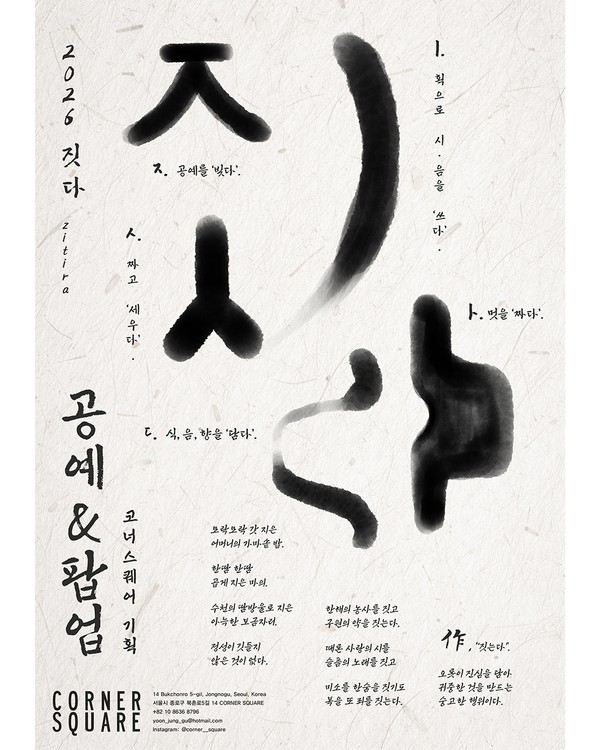 2026 짓다
zitira
지
ㅈ. 공예를 '빚다'.
ㅣ. 획으로 시·음을 '쓰다'.
ㅅ. 짜고 '세우다'.
ㅏ. 멋을 '짜다'.
ㄷ. 식, 음, 향을 '담다'.
공예&팝업
코너스퀘어 기획
모락모락 갓 지은
어머니의 가마솥 밥.
한땀 한땀
곱게 지은 마의.
수천의 땀방울로 지은
아늑한 보금자리.
정성이 깃들지
않은 것이 없다.
한해의 농사를 짓고
구원의 약을 짓는다.
때론 사랑의 시를
슬픔의 노래를 짓고
미소를 한숨을 짓기도
복을 또 죄를 짓는다.
作, "짓는다".
오롯이 진심을 담아
귀중한 것을 만드는
숭고한 행위이다.
CORNER
SQUARE
14 Bukchonro 5-gil, Jongnogu, Seoul, Korea
서울시 종로구 북촌로5길 14 CORNER SQUARE
+82 10 8636 8796
yoon_jung_gu@hotmail.com
Instagram: @corner__square